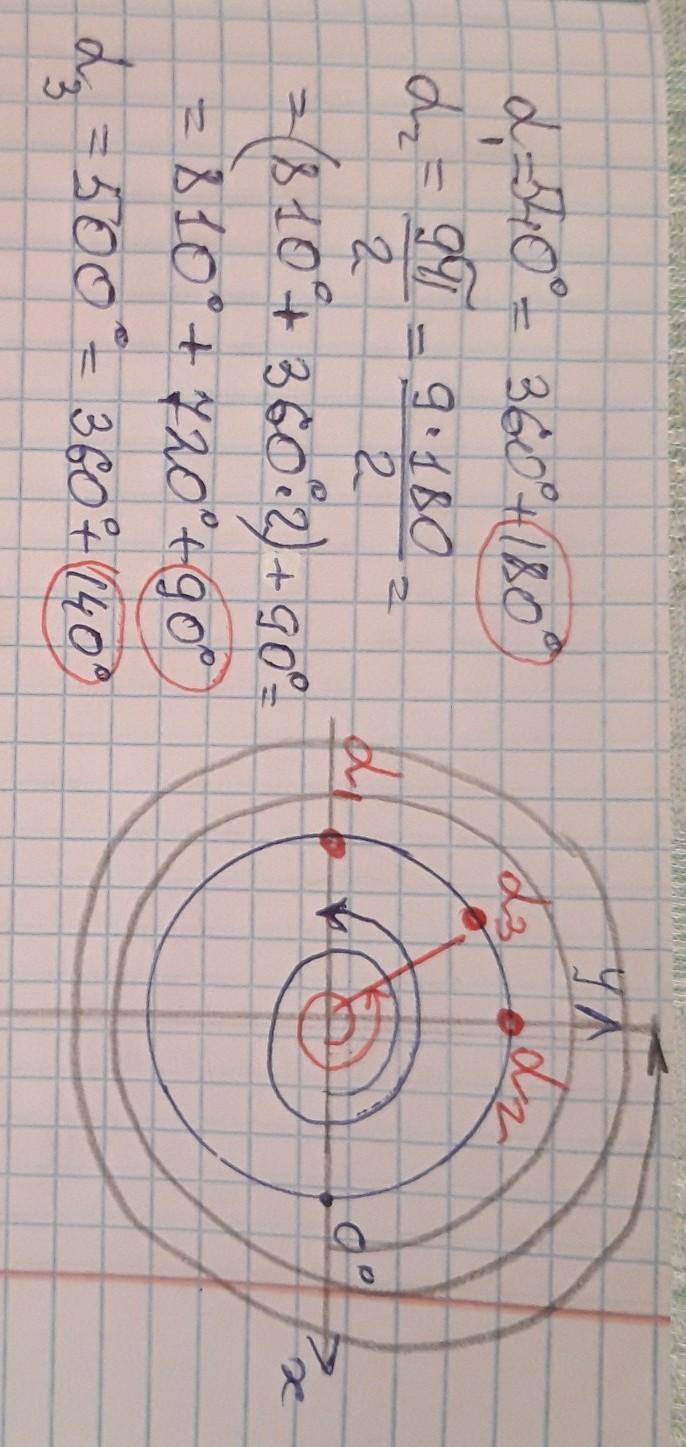 α₁=540°= 360°+180°
α₂ = 9π/2 = 9·180/2 =
=(810°+ 360°·2)+90°=
= 810°+ 720°+90°
α₃ =500°= 360°+140°
α₁
α₃
y
α₂
0°
x